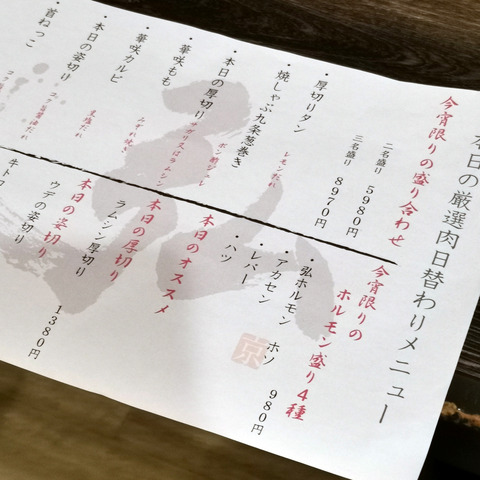 本日の厳選肉日替わりメニュー
今宵限りの盛り合わせ
二名盛り 5980円
三名盛り 8970円
・厚切りタン
レモンだれ
・焼しゃぶ九条葱巻き
ポン酢ジュレ
・本日の厚切り
サガリ・ラムシン
・華咲もも
みすれ焼き
・華咲カルビ
・本日の姿切り
・首ねっこ
今宵限りの
ホルモン盛り4種
980円
・弘ホルモン ホソ
・アカセン
・レバー
・ハツ
京
本日のオススメ
本日の厚切り
ラムシン厚切り
本日の姿切り
ウデの姿切り
1380円
牛トロ